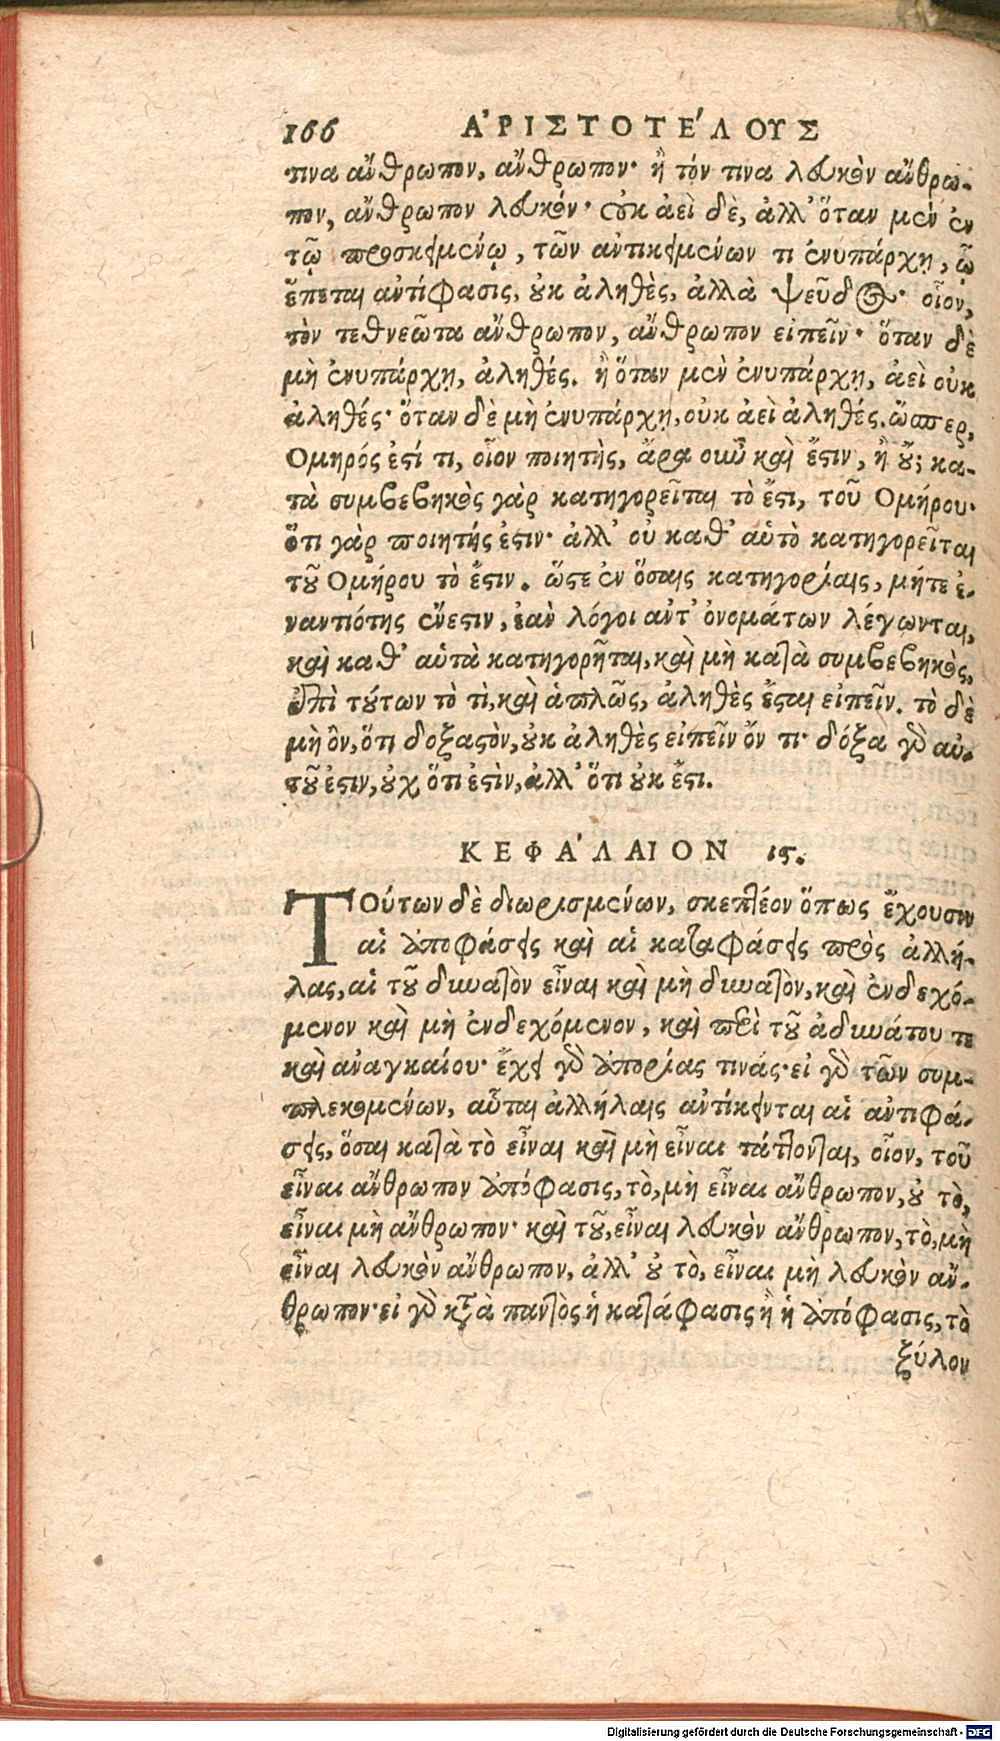 166 ΑʹΡΙΣΤΟΤΕʹΛΟΥΣ
τινα ἄνθρωπον, ἄνθρωπον· ἢ τόν τινα λευκὸν ἄνθρω-
πον, ἄνθρωπον λευκόν· οὐκ ἀεὶ δὲ, ἀλλ' ὅταν μὲν ἐν
τῷ προσκειμένῳ, τῶν ἀντικειμένων τι ἐνυπάρχῃ, ᾧ
ἕπεται ἀντίφασις, οὐκ ἀληθὲς, ἀλλὰ ψεῦδος· οἷον,
τὸν τεθνεῶτα ἄνθρωπον, ἄνθρωπον εἰπεῖν· ὅταν δὲ
μὴ ἐνυπάρχῃ, ἀληθές. ἢ ὅταν μὲν ἐνυπάρχῃ, ἀεὶ οὐκ
ἀληθές· ὅταν δὲ μὴ ἐνυπάρχῃ, οὐκ ἀεὶ ἀληθές. ὥσπερ,
Ομηρός ἐστί τι, οἷον ποιητὴς, ἆρα οὖν καὶ ἔστιν, ἢ οὔ; κα-
τὰ συμβεβηκὸς γὰρ κατηγορεῖται τὸ ἔστι, τοῦ Ομήρου·
ὅτι γὰρ ποιητής ἐστιν· ἀλλ' οὐ καθ' αὑτὸ κατηγορεῖται
τοῦ Ομήρου τὸ ἔστιν. ὥστε ἐν ὅσαις κατηγορίαις, μήτε ἐ-
ναντιότης ἔνεστιν, ἐὰν λόγοι ἀντ' ὀνομάτων λέγωνται,
καὶ καθ' αὑτὰ κατηγορῆται, καὶ μὴ κατὰ συμβεβηκὸς,
ἐπὶ τούτων τὸ τὶ, καὶ ἁπλῶς, ἀληθὲς ἔσται εἰπεῖν. τὸ δὲ
μὴ ὂν, ὅτι δοξαστὸν, οὐκ ἀληθὲς εἰπεῖν ὄν τι· δόξα γὰρ αὐ-
τοῦ ἐστιν, οὐχ ὅτι ἐστὶν, ἀλλ' ὅτι οὐκ ἔστι.
ΚΕΦΑʹΛΑΙΟΝ ιϛ.
ΤΟύτων δὲ διωρισμένων, σκεπτέον ὅπως ἔχουσιν
αἱ ἀποφάσεις καὶ αἱ καταφάσεις πρὸς ἀλλή-
λας, αἱ τοῦ δυνατὸν εἶναι καὶ μὴ δυνατὸν, καὶ ἐνδεχό-
μενον καὶ μὴ ἐνδεχόμενον, καὶ περὶ τοῦ ἀδυνάτου τε
καὶ ἀναγκαίου· ἔχει γὰρ ἀπορίας τινάς· εἰ γὰρ τῶν συμ-
πλεκομένων, αὗται ἀλλήλαις ἀντίκεινται αἱ ἀντιφά-
σεις, ὅσαι κατὰ τὸ εἶναι καὶ μὴ εἶναι τάττονται, οἷον, τοῦ
εἶναι ἄνθρωπον ἀπόφασις, τὸ, μὴ εἶναι ἄνθρωπον, οὐ τὸ,
εἶναι μὴ ἄνθρωπον· καὶ τοῦ, εἶναι λευκὸν ἄνθρωπον, τὸ, μὴ
εἶναι λευκὸν ἄνθρωπον, ἀλλ' οὐ τὸ, εἶναι μὴ λευκὸν ἄν-
θρωπον· εἰ γὰρ κατὰ παντὸς ἡ κατάφασις ἢ ἡ ἀπόφασις, τὸ
ξύλον
Digitalisierung gefördert durch die Deutsche Forschungsgemeinschaft - DFG